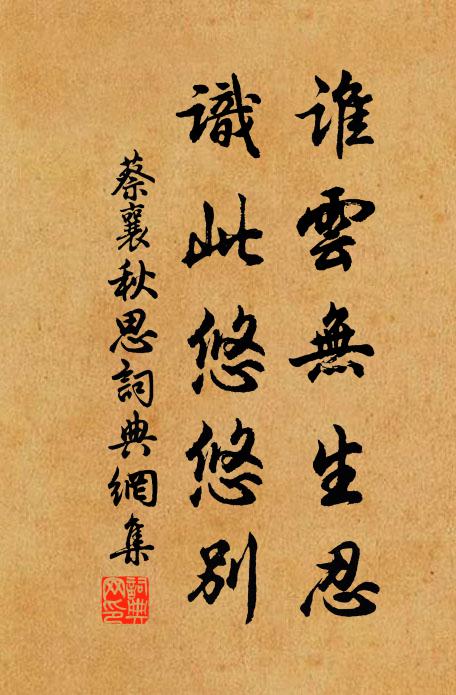 誰雲無生忍
識此悠悠別
蔡襄秋思詞典網集
詞典網印